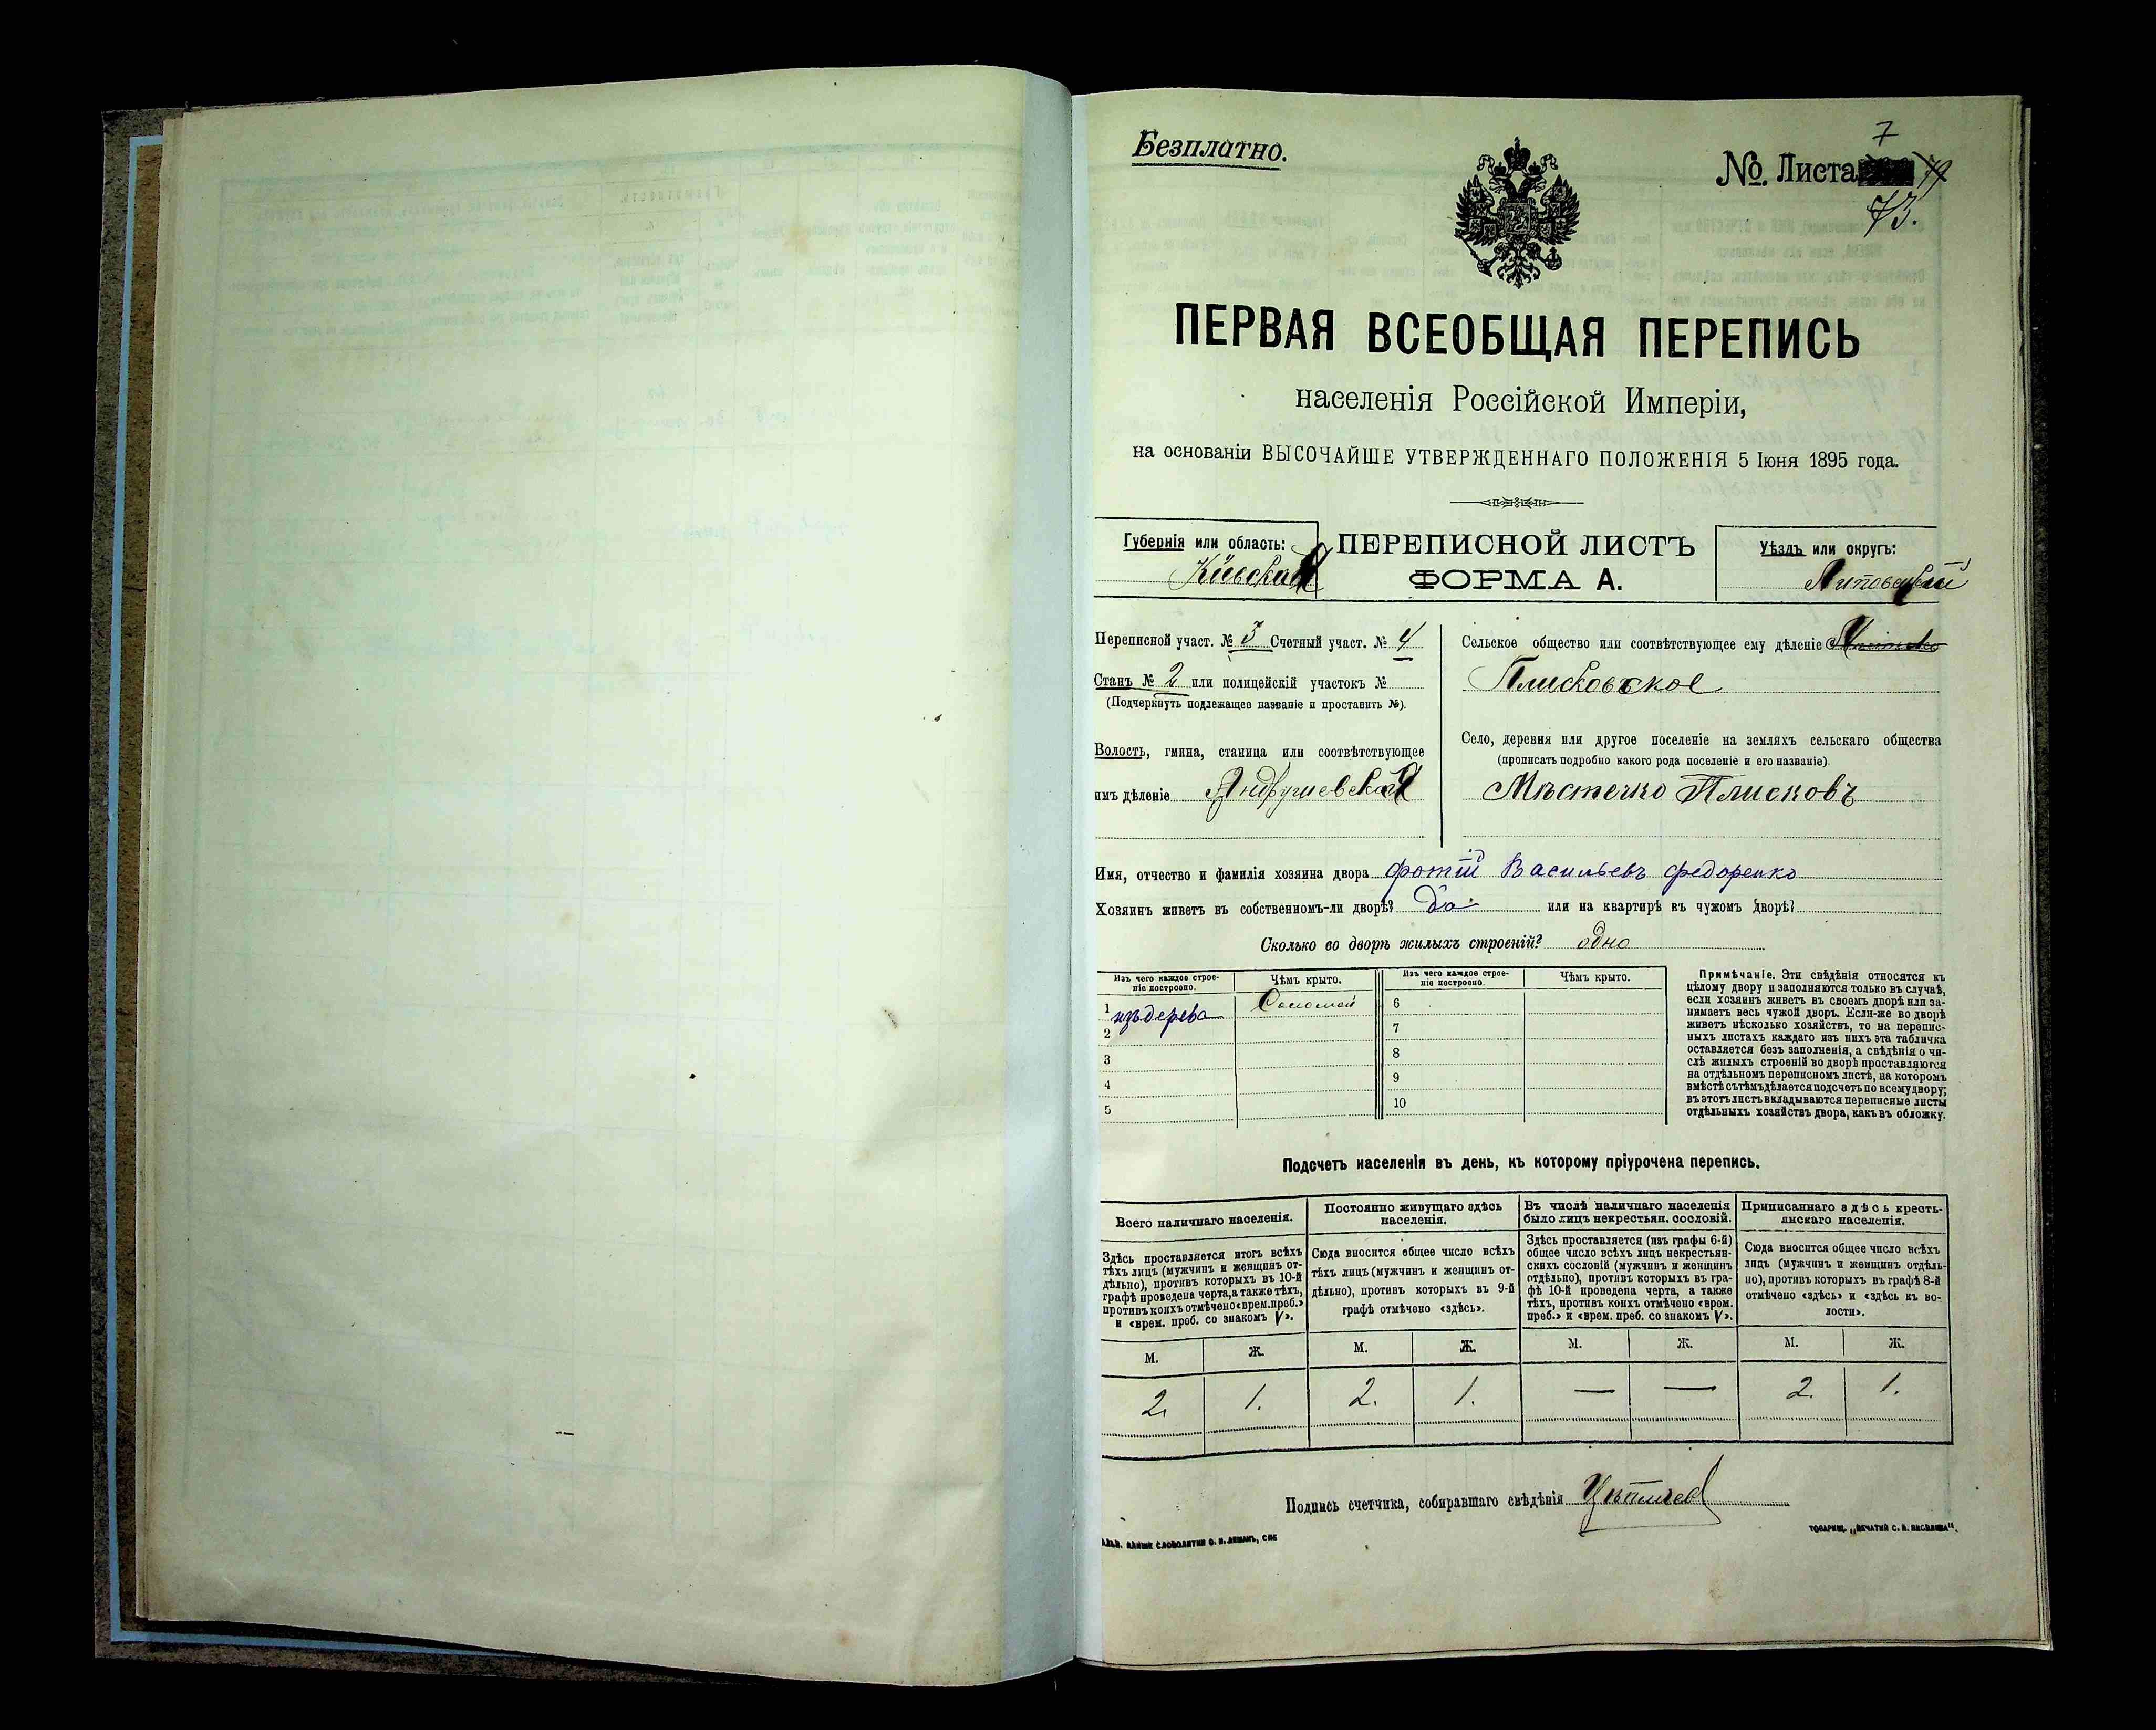 Безплатно.
7
№. Листа
73.
ПЕРВАЯ ВСЕОБЩАЯ ПЕРЕПИСЬ
населенія Россійской Имперіи,
на основаніи ВЫСОЧАЙШЕ УТВЕРЖДЕННАГО ПОЛОЖЕНІЯ 5 Іюня 1895 года.
Губернія или область:
Кіевская
ПЕРЕПИСНОЙ ЛИСТЪ
ФОРМА А.
Уѣздъ или округъ:
Липовецкій
Переписной участ. № 3 Счетный участ. № 4
Станъ № 2 или полицейскій участокъ №
(Подчеркнуть подлежащее названіе и проставить №).
Волость, гмина, станица или соотвѣтствующее
имъ дѣленіе Андрушевская
Сельское общество или соотвѣтствующее ему дѣленіе
Плисковское
Село, деревня или другое поселеніе на земляхъ сельскаго общества
(прописать подробно какого рода поселеніе и его названіе)
Мѣстечко Плисковъ
Имя, отчество и фамилія хозяина двора Фотій Васильевъ Федоренко
Хозяинъ живетъ въ собственномъ-ли дворѣ? да. или на квартирѣ въ чужомъ дворѣ?
Сколько во дворѣ жилыхъ строеній? одно
Изъ чего каждое строе-
ніе построено.
Чѣмъ крыто.
Изъ чего каждое строе-
ніе построено.
Чѣмъ крыто.
1 изъ дерева Соломой 6
2 7
3 8
4 9
5 10
Примѣчаніе. Эти свѣдѣнія относятся къ
цѣлому двору и заполняются только въ случаѣ,
если хозяинъ живетъ въ своемъ дворѣ или за-
нимаетъ весь чужой дворъ. Если-же во дворѣ
живетъ нѣсколько хозяйствъ, то на перепис-
ныхъ листахъ каждаго изъ нихъ эта табличка
оставляется безъ заполненія, а свѣдѣнія о чи-
слѣ жилыхъ строеній во дворѣ проставляются
на отдѣльномъ переписномъ листѣ, на которомъ
вмѣстѣ съ тѣмъ дѣлается подсчетъ по всему двору;
въ этотъ листъ вкладываются переписные листы
отдѣльныхъ хозяйствъ двора, какъ въ обложку.
Подсчетъ населенія въ день, къ которому пріурочена перепись.
Всего наличнаго населенія.
Здѣсь проставляется итогъ всѣхъ
тѣхъ лицъ (мужчинъ и женщинъ от-
дѣльно), противъ которыхъ въ 10-й
графѣ проведена черта, а также тѣхъ,
противъ коихъ отмѣчено «врем. преб.»
и «врем. преб. со знакомъ V».
Постоянно живущаго здѣсь
населенія.
Сюда вносится общее число всѣхъ
тѣхъ лицъ (мужчинъ и женщинъ от-
дѣльно), противъ которыхъ въ 9-й
графѣ отмѣчено «здѣсь».
Въ числѣ наличнаго населенія
было лицъ некрестьян. сословій.
Здѣсь проставляется (изъ графы 6-й)
общее число всѣхъ лицъ некрестьян-
скихъ сословій (мужчинъ и женщинъ
отдѣльно), противъ которыхъ въ гра-
фѣ 10-й проведена черта, а также
тѣхъ, противъ коихъ отмѣчено «врем.
преб.» и «врем. преб. со знакомъ V».
Приписаннаго здѣсь кресть-
янскаго населенія.
Сюда вносится общее число всѣхъ
лицъ (мужчинъ и женщинъ отдѣль-
но), противъ которыхъ въ графѣ 8-й
отмѣчено «здѣсь» и «здѣсь къ во-
лости».
М. Ж. М. Ж. М. Ж. М. Ж.
2. 1. 2. 1. — — 2. 1.
Подпись счетчика, собиравшаго свѣдѣнія